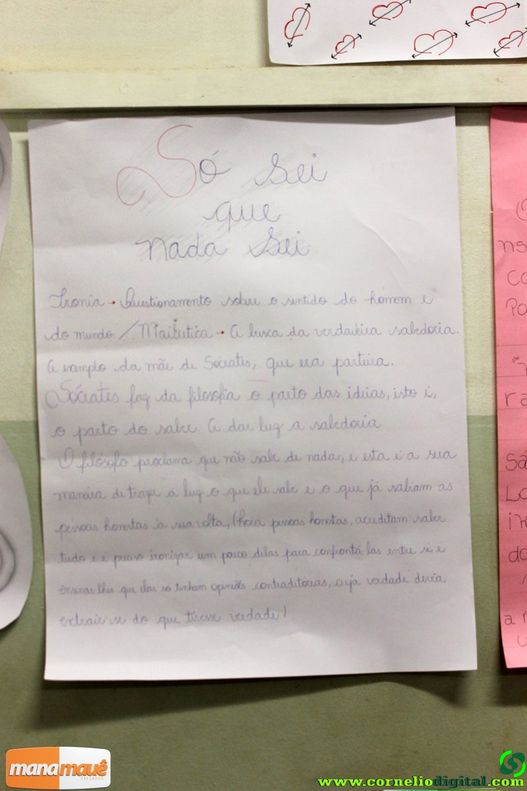 Só sei
que
nada sei
Ironia → Questionamento sobre o sentido do homem e
do mundo / Maiêutica → A busca da verdadeira sabedoria.
A exemplo da mãe de Sócrates, que era parteira.
Sócrates faz da filosofia o parto das idéias, isto é,
o parto do saber. A dar luz a sabedoria
O filósofo proclama que não sabe de nada, e esta é a sua
maneira de trazer à luz o que ele sabe e o que já sabiam as
pessoas honestas à sua volta, pessoas honestas, acreditam saber
tudo e é preciso ironizar um pouco delas para confrontá-las entre si e
ensinar-lhes que elas só tinham opiniões contraditórias, cuja verdade devia
extrair-se do que tivesse verdade!
ns
co
Po
ra
Sá
Lo
do
a
manamauê
www.corneliodigital.com